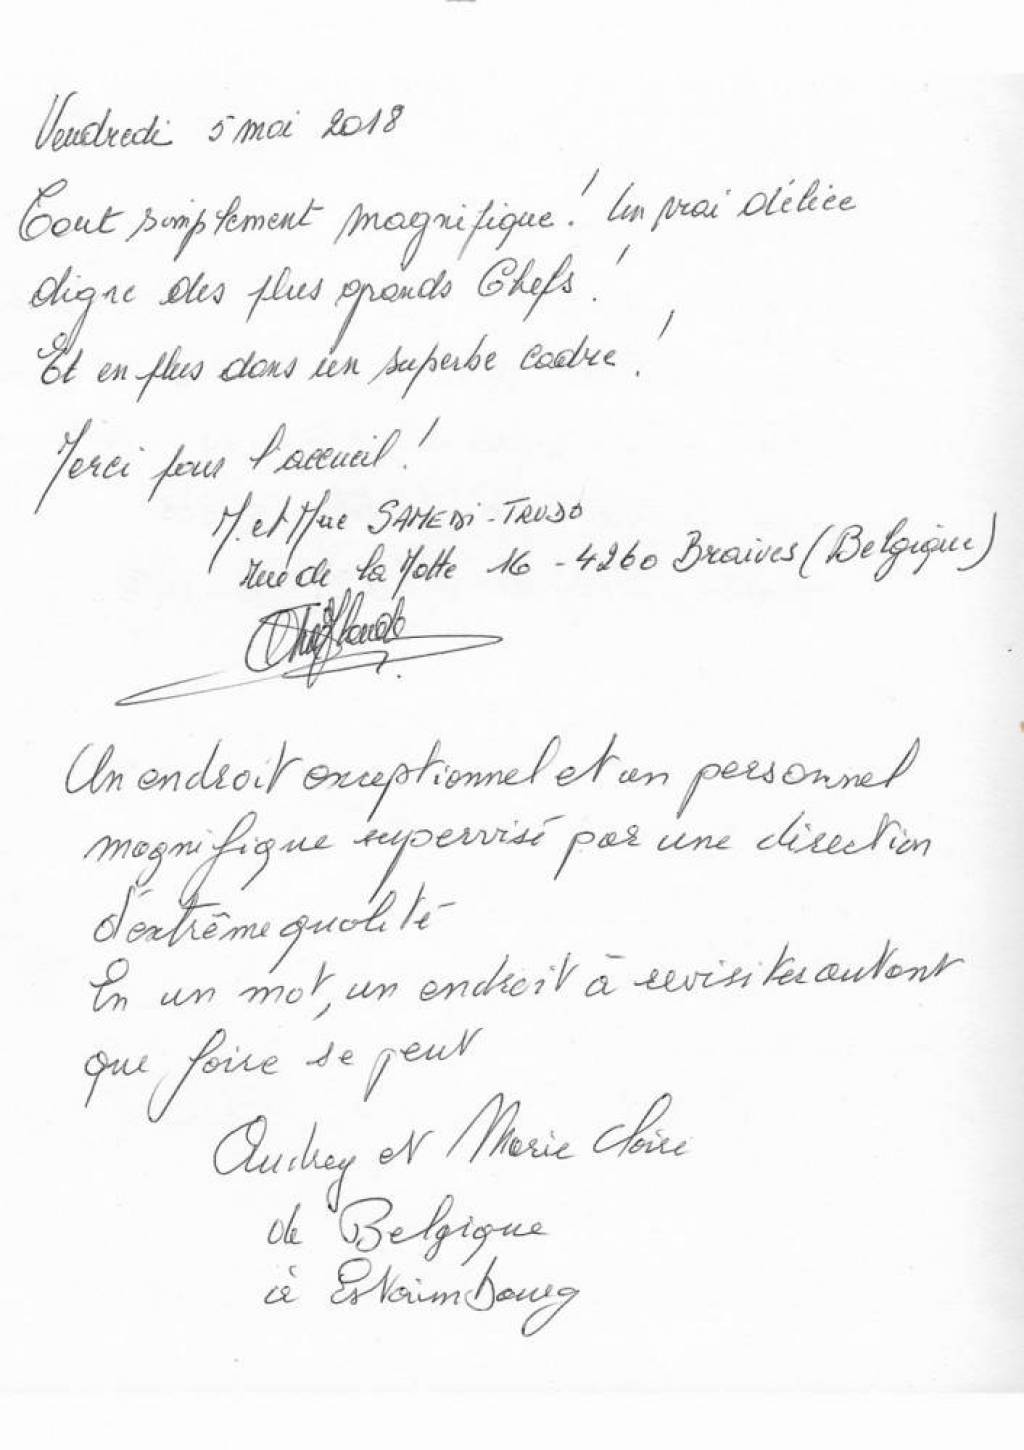 Vendredi 5 mai 2018
Tout simplement magnifique ! Un vrai délice
digne des plus grands Chefs !
Et en plus dans un superbe cadre !
Merci pour l'accueil !
M. et Mme SAMEDI - TRUDO
Rue de la Motte 16 - 4260 Braives (Belgique)
Un endroit exceptionnel et un personnel
magnifique supervisé par une direction
d'extrême qualité
En un mot, un endroit à revisiter autant
que faire se peut
Audrey et Marie Claire
de Belgique
à Estaimbourg